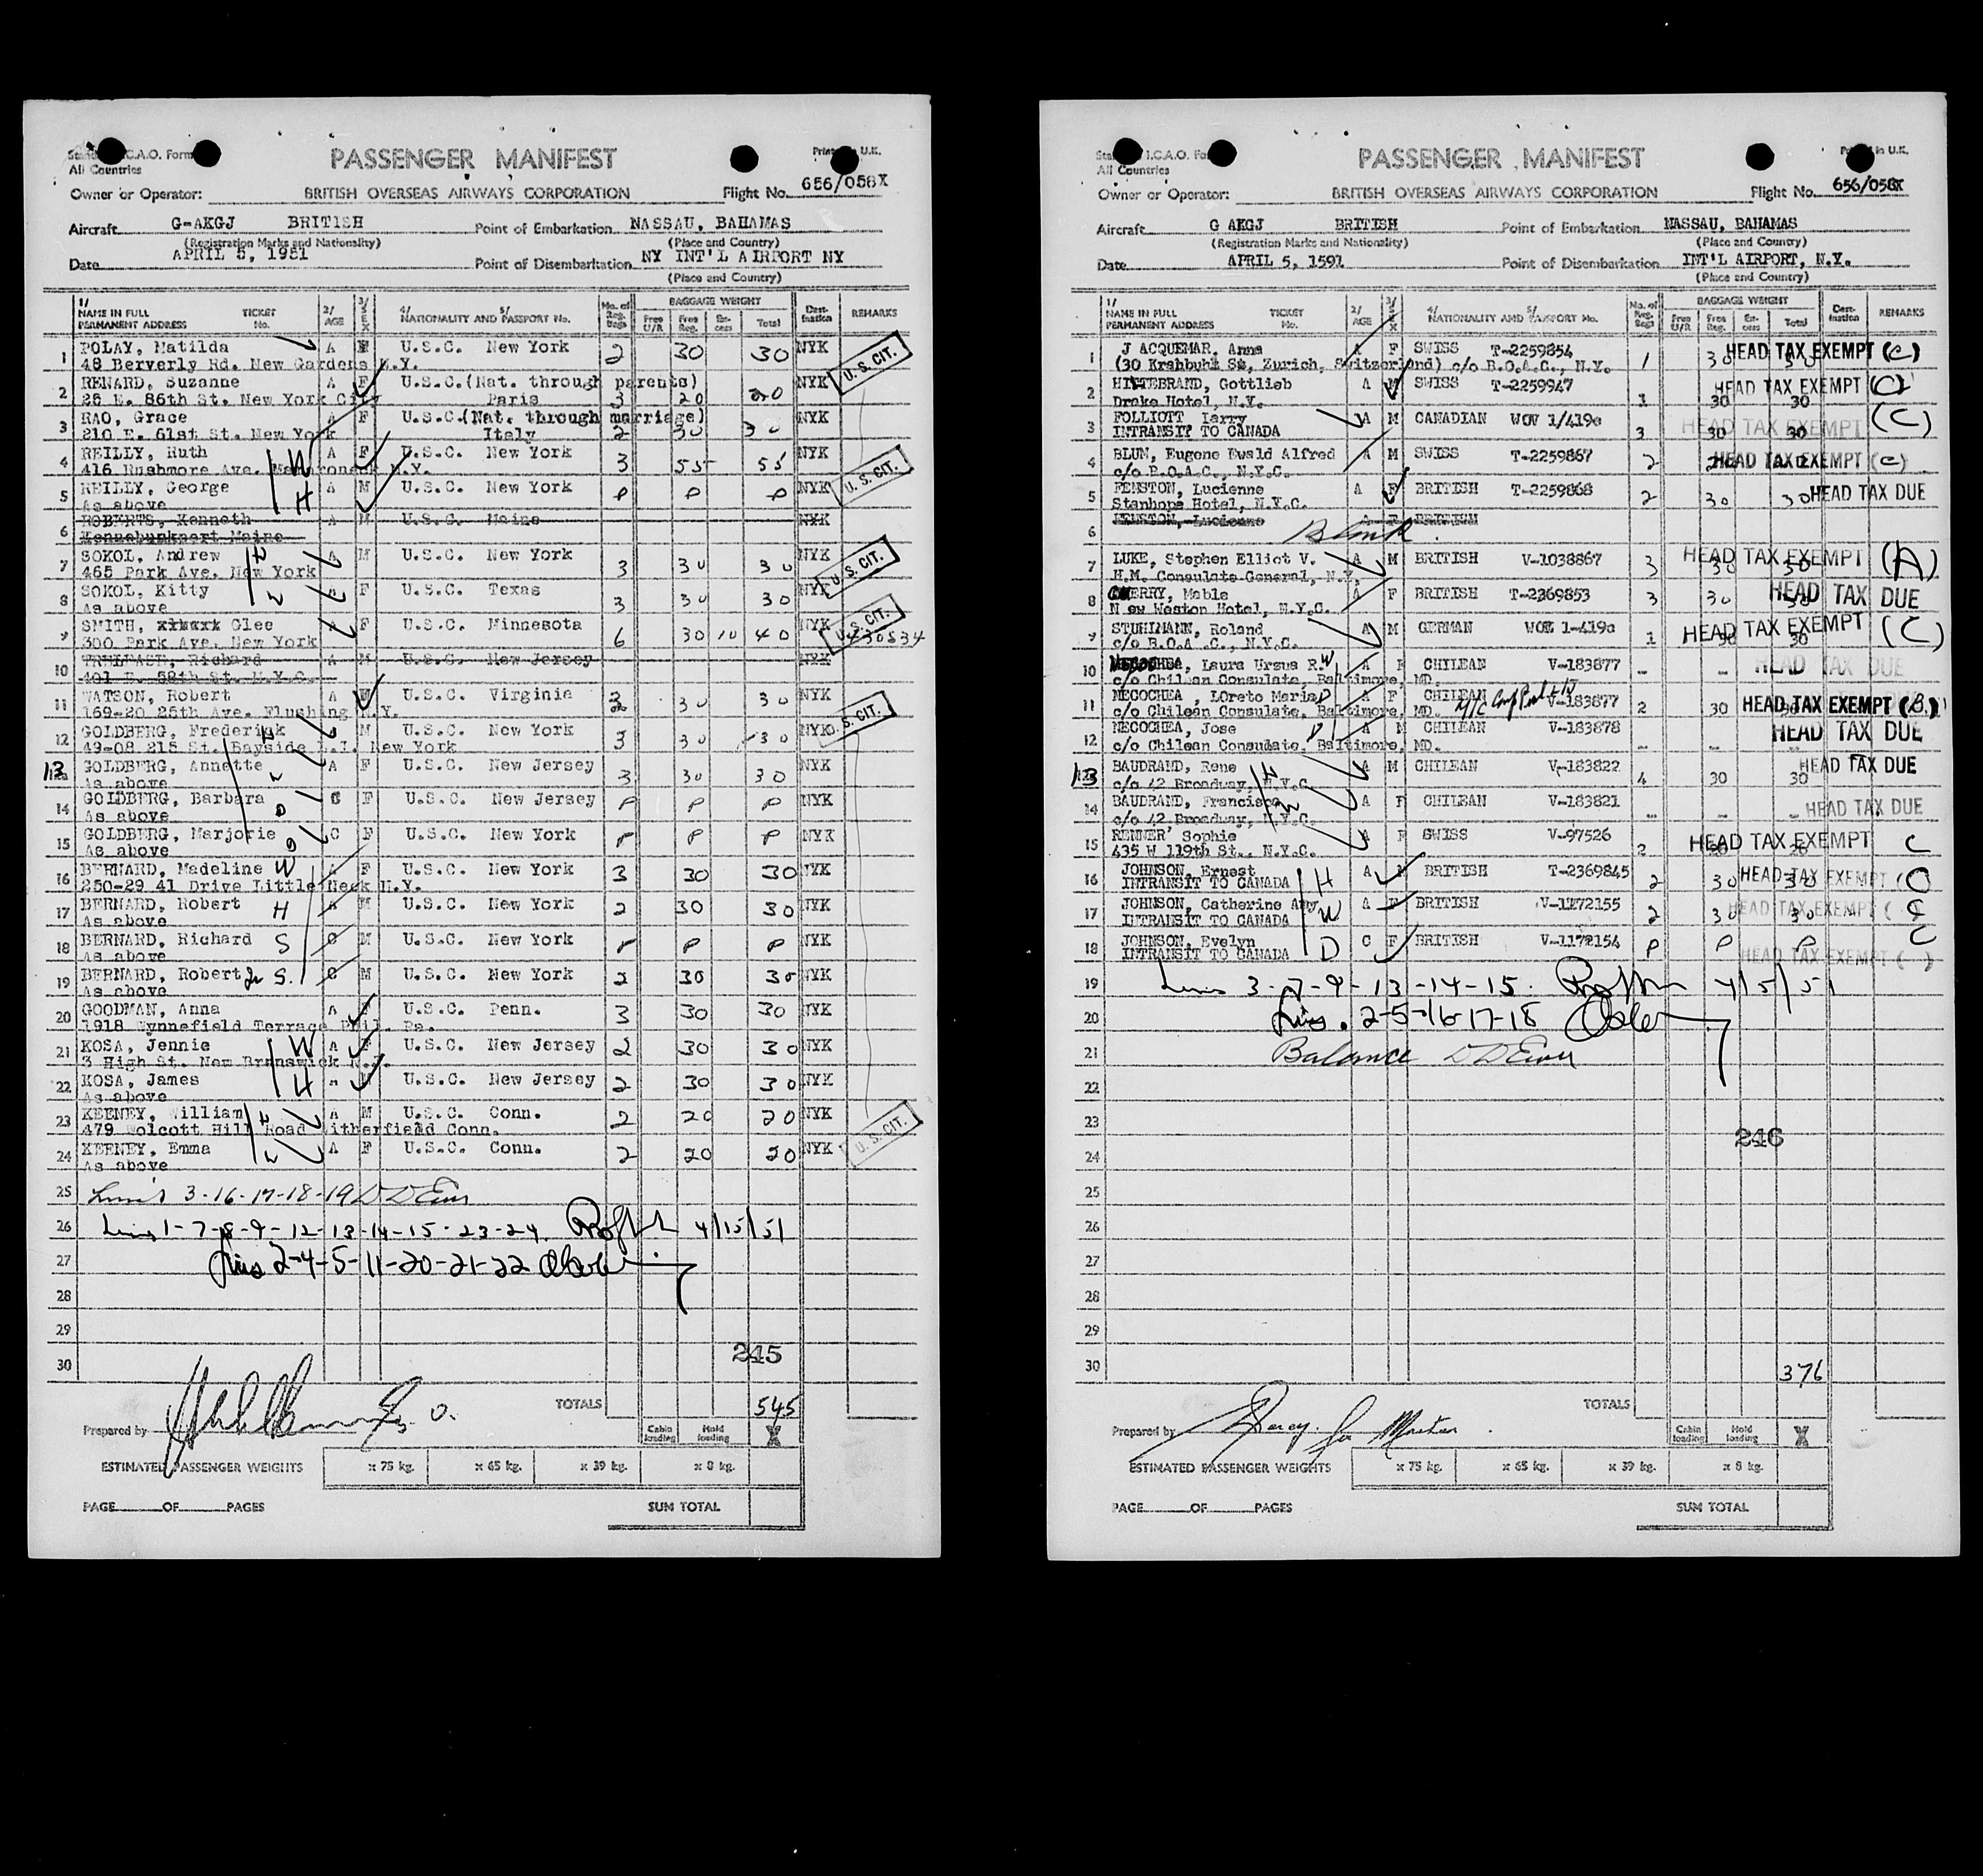 Stand I.C.A.O. Form
All Countries
PASSENGER MANIFEST
Printed U.K.
Owner or Operator: BRITISH OVERSEAS AIRWAYS CORPORATION Flight No. 656/058X
Aircraft G-AKGJ BRITISH Point of Embarkation NASSAU, BAHAMAS
(Registration Marks and Nationality) (Place and Country)
Date APRIL 5, 1951 Point of Disembarkation NY INT'L AIRPORT NY
(Place and Country)
1/ NAME IN FULL TICKET No. 2/ AGE 3/ SEX 4/ NATIONALITY AND 5/ PASSPORT No. No. of Reg. Bags BAGGAGE WEIGHT Dest- ination REMARKS
PERMANENT ADDRESS Free U/R Free Reg. Ex- cess Total
1 POLAY, Matilda A F U.S.C. New York 2 30 30 NYK U.S. CIT.
48 Berverly Rd. New Gardens N.Y.
2 RENARD, Suzanne A F U.S.C.(Nat. through parents) NYK
26 E. 86th St. New York City Paris 3 20 20
3 RAO, Grace A F U.S.C.(Nat. through marriage) NYK
210 E. 61st St. New York Italy 2 30 30
4 REILLY, Ruth W A F U.S.C. New York 3 55 55 NYK
416 Rushmore Ave. Mamaroneck N.Y.
5 REILLY, George H A M U.S.C. New York P P P NYK U.S. CIT.
As above
6 ROBERTS, Kenneth A M U.S.C. Maine NYK
Kennebunkport Maine
7 SOKOL, Andrew H A M U.S.C. New York 3 30 30 NYK U.S. CIT.
465 Park Ave. New York
8 SOKOL, Kitty W A F U.S.C. Texas 3 30 30 NYK
As above
9 SMITH, Glee A F U.S.C. Minnesota 6 30 10 40 NYK U.S. CIT.
300 Park Ave. New York
10 Richard A M U.S.C. New Jersey NYK
401 E. 58th St. N.Y.C.
11 WATSON, Robert A M U.S.C. Virginia 2 30 30 NYK
169-20 25th Ave. Flushing N.Y.
12 GOLDBERG, Frederick H A M U.S.C. New York 3 30 30 NYK U.S. CIT.
49-08 215 St. Bayside L.I. New York
13 GOLDBERG, Annette W A F U.S.C. New Jersey 3 30 30 NYK
As above
14 GOLDBERG, Barbara D C F U.S.C. New Jersey P P P NYK
As above
15 GOLDBERG, Marjorie D C F U.S.C. New York P P P NYK
As above
16 BERNARD, Madeline W A F U.S.C. New York 3 30 30 NYK
250-29 41 Drive Little Neck N.Y.
17 BERNARD, Robert H A M U.S.C. New York 2 30 30 NYK
As above
18 BERNARD, Richard S C M U.S.C. New York P P P NYK
As above
19 BERNARD, Robert Jr S. C M U.S.C. New York 2 30 30 NYK
As above
20 GOODMAN, Anna A F U.S.C. Penn. 3 30 30 NYK
1918 Wynnefield Terrace Phil. Pa.
21 KOSA, Jennie W A F U.S.C. New Jersey 2 30 30 NYK
3 High St. New Brunswick N.J.
22 KOSA, James H A M U.S.C. New Jersey 2 30 30 NYK
As above
23 KEENEY, William H A M U.S.C. Conn. 2 20 20 NYK U.S. CIT.
479 Wolcott Hill Road Witherfield Conn.
24 KEENEY, Emma W A F U.S.C. Conn. 2 20 20 NYK
As above
25 3-16-17-18-19
26 Lines 1-7-8-9-12-13-14-15-23-24 4/15/51
27 Lines 2-4-5-11-20-21-22
28
29
245
30
TOTALS 545
Prepared by Cabin loading Hold loading X
ESTIMATED PASSENGER WEIGHTS x 75 kg. x 65 kg. x 39 kg. x 8 kg.
PAGE OF PAGES SUM TOTAL
I.C.A.O. Fo
All Countries
PASSENGER MANIFEST
in U.K.
Owner or Operator: BRITISH OVERSEAS AIRWAYS CORPORATION Flight No. 656/058X
Aircraft G AKGJ BRITISH Point of Embarkation NASSAU, BAHAMAS
(Registration Marks and Nationality) (Place and Country)
Date APRIL 5, 1591 Point of Disembarkation INT'L AIRPORT, N.Y.
(Place and Country)
1/ NAME IN FULL TICKET No. 2/ AGE 3/ SEX 4/ NATIONALITY AND 5/ PASSPORT No. No. of Reg. Bags BAGGAGE WEIGHT Dest- ination REMARKS
PERMANENT ADDRESS Free U/R Free Reg. Ex- cess Total
1 J ACQUEMAR, Anna F SWISS T-2259854 1 30 30 HEAD TAX EXEMPT (C)
(30 Krahbuhl St, Zurich, Switzerland) c/o B.O.A.C., N.Y.
2 HILTEBRAND, Gottlieb A M SWISS T-2259947 1 30 30 HEAD TAX EXEMPT (C)
Drake Hotel, N.Y.
3 FOLLIOTT Larry A M CANADIAN WOV 1/419c 3 30 30 HEAD TAX EXEMPT (C)
INTRANSIT TO CANADA
4 BLUM, Eugene Ewald Alfred A M SWISS T-2259867 2 HEAD TAX EXEMPT (C)
c/o B.O.A.C., N.Y.C.
5 FENSTON, Lucienne A F BRITISH T-2259868 2 30 30 HEAD TAX DUE
Stanhope Hotel, N.Y.C.
6 FENSTON, Lucienne A F BRITISH
Blank.
7 LUKE, Stephen Elliot V. A M BRITISH V-1038867 3 30 30 HEAD TAX EXEMPT (A)
H.M. Consulate General, N.Y.
8 CHERRY, Mable A F BRITISH T-2369853 3 30 30 HEAD TAX DUE
New Weston Hotel, N.Y.C.
9 STUHLMANN, Roland A M GERMAN WOE 1-419c 1 30 30 HEAD TAX EXEMPT (C)
c/o B.O.A.C., N.Y.C.
10 NECOCHEA, Laura Urzua R. W A F CHILEAN V-183877 - HEAD TAX DUE
c/o Chilean Consulate, Baltimore, MD.
11 NECOCHEA, LOreto Maria D A F CHILEAN V-183877 2 30 HEAD TAX EXEMPT (B)
c/o Chilean Consulate, Baltimore, MD.
12 NECOCHEA, Jose A M CHILEAN V-183878 - - HEAD TAX DUE
c/o Chilean Consulate, Baltimore, MD.
13 BAUDRAND, Rene H A M CHILEAN V-183822 4 30 30 HEAD TAX DUE
c/o 42 Broadway, N.Y.C.
14 BAUDRAND, Francisca W A F CHILEAN V-183821 - - HEAD TAX DUE
c/o 42 Broadway, N.Y.C.
15 RENNER' Sophie A F SWISS V-97526 2 HEAD TAX EXEMPT C
435 W 119th St., N.Y.C.
16 JOHNSON, Ernest H A M BRITISH T-2369845 2 30 30 HEAD TAX EXEMPT (C)
INTRANSIT TO CANADA
17 JOHNSON, Catherine Amy W A F BRITISH V-1172155 2 30 30 HEAD TAX EXEMPT (C
INTRANSIT TO CANADA
18 JOHNSON, Evelyn D C F BRITISH V-1172154 P P P HEAD TAX EXEMPT ( ) C
INTRANSIT TO CANADA
19 Lines 3-7-9-13-14-15. 4/5/51
20 Lines. 2-5-16-17-18
21 Balance
22
23
246
24
25
26
27
28
29
30 376
TOTALS
Prepared by for Cabin loading Hold loading X
ESTIMATED PASSENGER WEIGHTS x 75 kg. x 65 kg. x 39 kg. x 8 kg.
PAGE OF PAGES SUM TOTAL